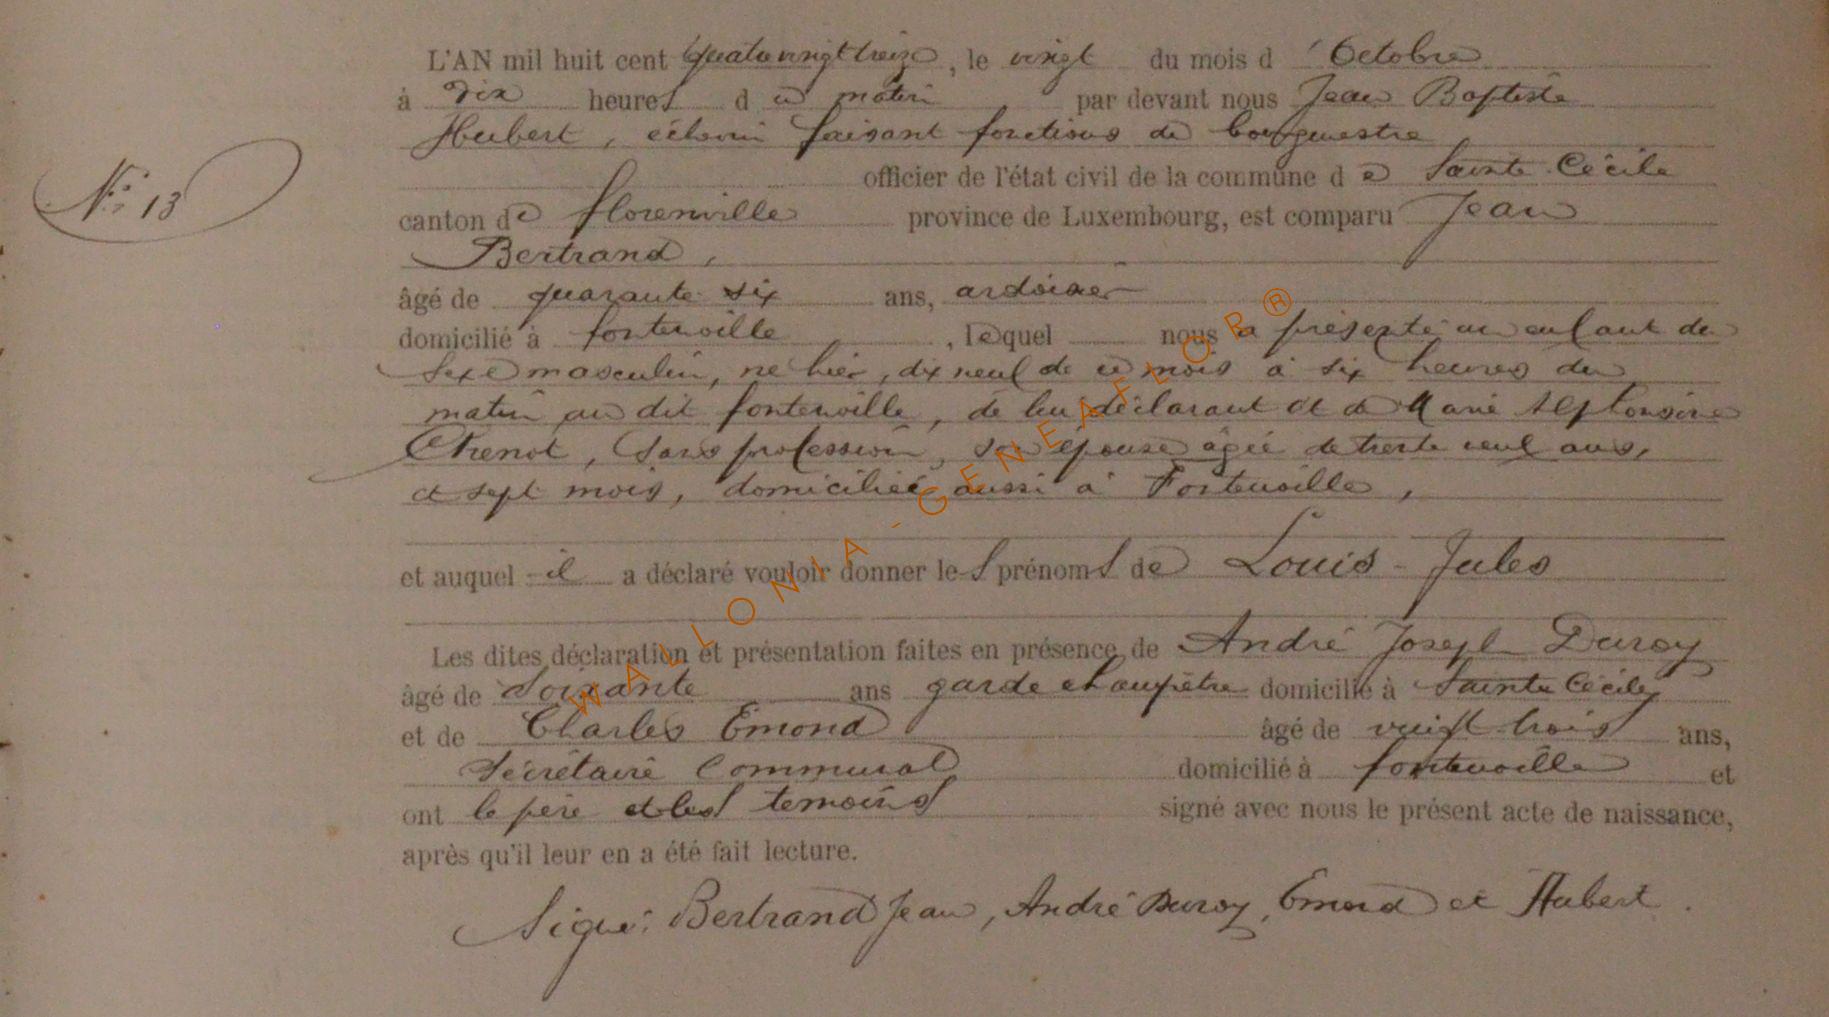 L'AN mil huit cent quatre vingt treize, le vingt du mois d'Octobre
à dix heures du matin par devant nous Jean Baptiste
Hubert, échevin faisant fonctions de bourgmestre
officier de l'état civil de la commune de Sainte-Cécile
N° 13
canton de florenville province de Luxembourg, est comparu Jean
Bertrand,
âgé de quarante-six ans, ardoisier
domicilié à fontenoille, lequel nous a présenté un enfant du
sexe masculin, né hier, dix neuf de ce mois à six heures du
matin au dit fontenoille, de lui déclarant et de Marie Alphonsine
Chenot, sans profession, son épouse âgée de trente neuf ans,
et sept mois, domiciliée aussi à Fontenoille,
et auquel il a déclaré vouloir donner les prénoms de Louis-Jules
Les dites déclaration et présentation faites en présence de André Joseph Duroy
âgé de Soixante ans garde champêtre domicilié à Sainte Cécile,
et de Charles Emond âgé de vingt trois ans,
Sécrétaire Communal domicilié à fontenoille et
ont le père et les temoins signé avec nous le présent acte de naissance,
après qu'il leur en a été fait lecture.
Signé: Bertrand Jean, André Duroy, Emond et Hubert.
WALLONIA-GENEAFLOR®